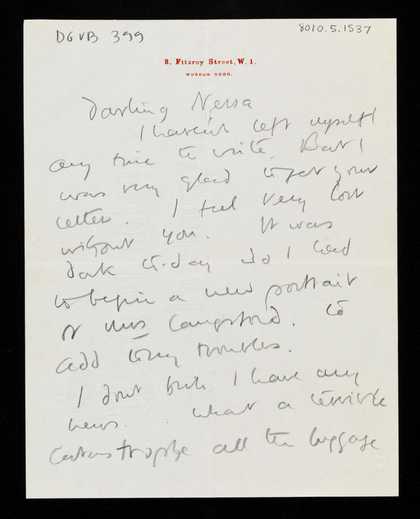 DGVB 399
8010.5.1537
8, Fitzroy Street, W. 1.
MUSEUM
Darling Nessa
I haven't left myself
any time to write. But I
was very glad to get your
letter. I feel very lost
without you. It was
dark to-day so I had
to begin a new portrait
of Mrs Langford. to
add to my troubles.
I dont think I have any
news. What a terrible
catastrophe all the luggage